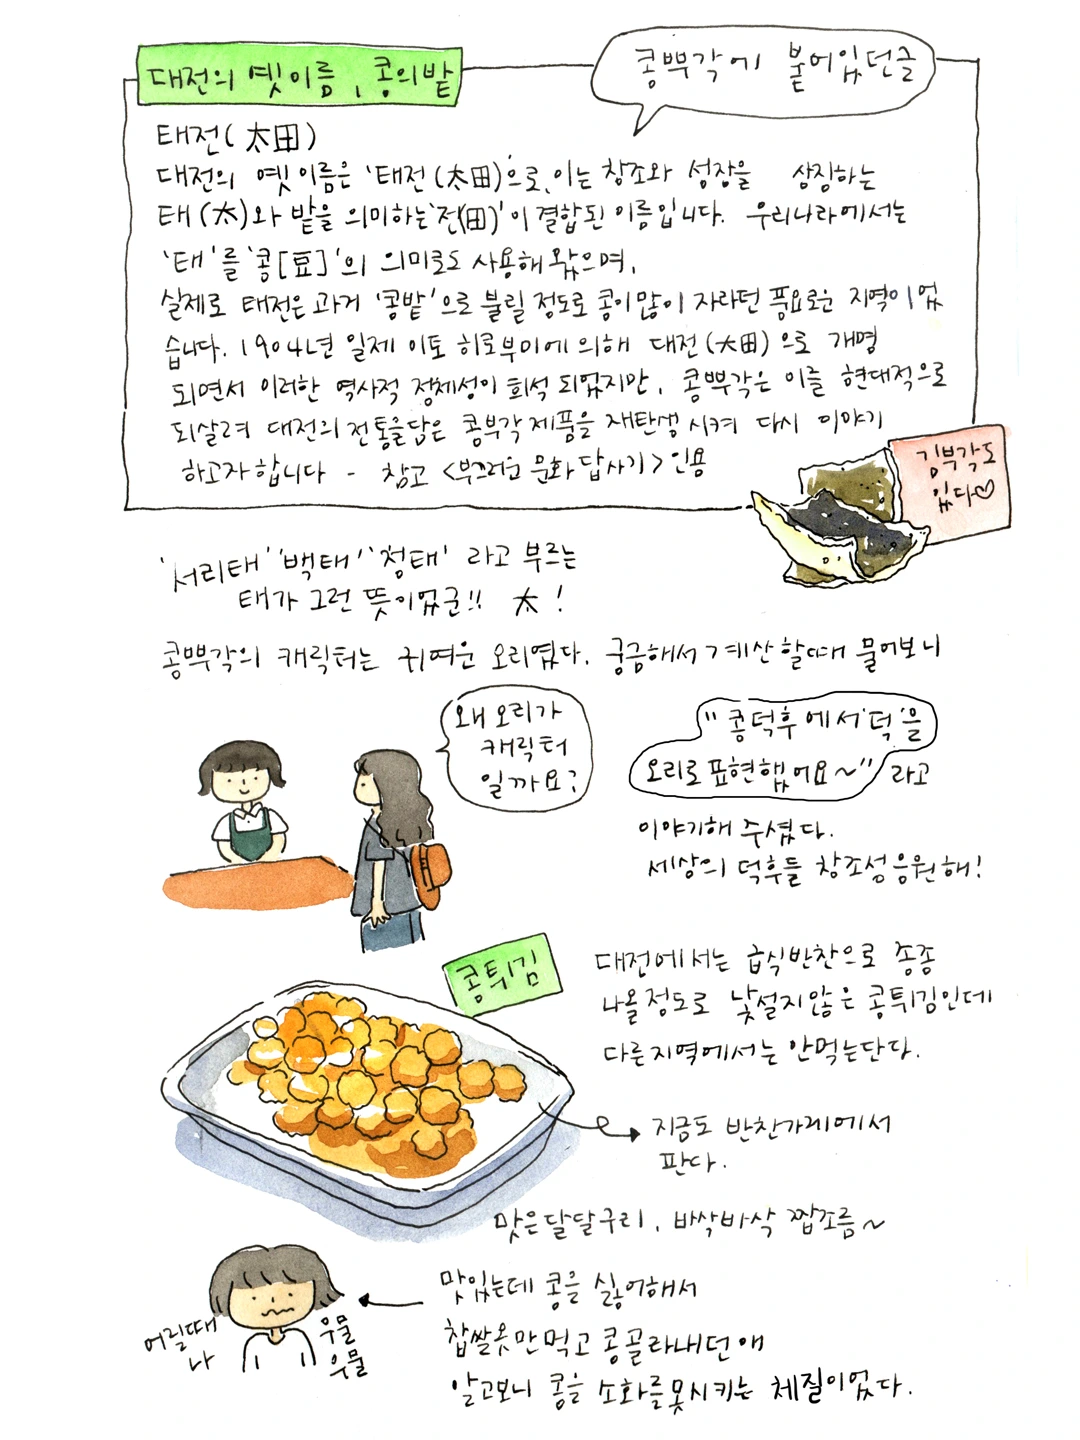 대전의 옛이름, 콩의밭
콩뿌각에 붙어있던글
태전(太田)
대전의 옛이름은 '태전(太田)'으로, 이는 창조와 성장을 상징하는
태(太)와 밭을 의미하는 '전(田)'이 결합된 이름입니다. 우리나라에서는
'태'를 '콩[豆]'의 의미로도 사용해왔으며,
실제로 태전은 과거 '콩밭'으로 불릴 정도로 콩이많이 자라던 풍요로운 지역이었
습니다. 1904년 일제 이토 히로부미에 의해 대전(大田)으로 개명
되면서 이러한 역사적 정체성이 희석 되었지만, 콩뿌각은 이를 현대적으로
되살려 대전의 전통을담은 콩부각제품을 재탄생시켜 다시 이야기
하고자합니다 - 참고 <부끄러운 문화답사기>인용
김부각도
있다♡
'서리태' '백태' '청태' 라고 부르는
태가 그런 뜻이었군!! 太!
콩뿌각의 캐릭터는 귀여운 오리였다. 궁금해서 계산할때 물어보니
왜 오리가
캐릭터
일까요?
"콩덕후에서 '덕'을
오리로표현했어요~" 라고
이야기해 주셨다.
세상의 덕후들 창조성응원해!
콩튀김
대전에서는 급식반찬으로 종종
나올정도로 낯설지않은 콩튀김인데
다른지역에서는 안먹는단다.
지금도 반찬가게에서
판다.
맛은달달구리, 바삭바삭 짭조름~
맛있는데 콩을 싫어해서
찹쌀옷만먹고 콩골라내던애
알고보니 콩을 소화를못시키는 체질이었다.
어릴때
나
우물
우물